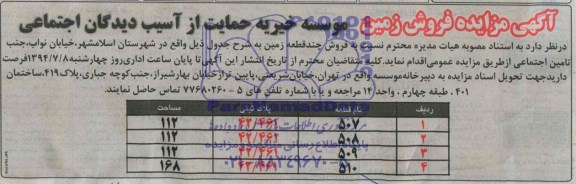 آگهی مزایده فروش زمین موسسه خیریه حمایت از آسیب دیدگان اجتماعی
درنظر دارد به استناد مصوبه هیات مدیره محترم نسبت به فروش چندقطعه زمین به شرح جدول ذیل واقع در شهرستان اسلامشهر،خیابان نواب،جنب
تامین اجتماعی ازطریق مزایده عمومی اقدام نماید.کلیه متقاضیان محترم از تاریخ انتشار این آگهی تا پایان ساعت اداری روز چهارشنبه ۱۳۹۴/۷/۸فرصت
دارندجهت تحویل اسناد مزایده به دبیرخانه موسسه واقع در تهران،خیابان شریعتی،پایین تراز خیابان بهارشیراز،جنب کوچه جباری،پلاک ۴۱۹،ساختمان
۴۰۱ ، طبقه چهارم ، واحد ۱۴ مراجعه و یا با شماره تلفن های ۵ - ۷۷۶۸۰۲۶۰ تماس حاصل نمایند.
ردیف نام قطعه پلاک ثبتی مساحت
۱ ۵۰۷ ۴۲/۴۶۲ ۱۱۲
۲ ۵۰۸ ۴۲/۴۶۲ ۱۱۲
۳ ۵۰۹ ۴۲/۴۶۲ ۱۱۲
۴ ۵۱۰ ۱۶۸
۰۲۱-۸۸۳۴۹۶۷۰